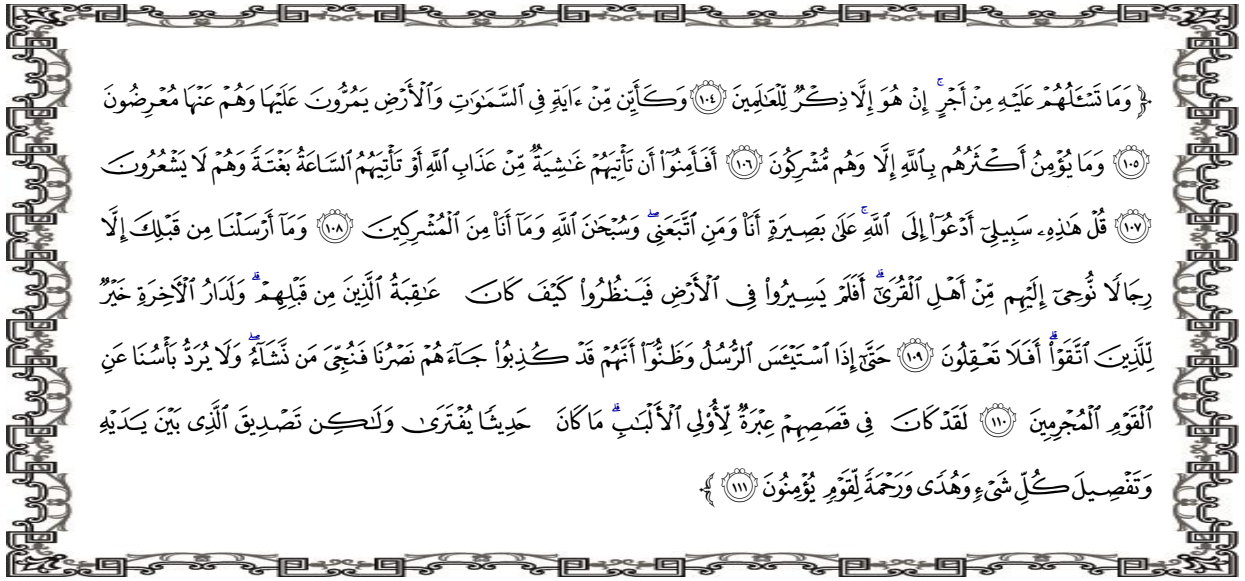 ﴿ وَمَا تَسْـَٔلُهُمْ عَلَيْهِ مِنْ أَجْرٍ ۚ إِنْ هُوَ إِلَّا ذِكْرٌ لِّلْعَـٰلَمِينَ ﴿١٠٤﴾ وَكَأَيِّن مِّنْ ءَايَةٍ فِى ٱلسَّمَـٰوَٰتِ وَٱلْأَرْضِ يَمُرُّونَ عَلَيْهَا وَهُمْ عَنْهَا مُعْرِضُونَ
﴿١٠٥﴾ وَمَا يُؤْمِنُ أَكْثَرُهُم بِٱللَّهِ إِلَّا وَهُم مُّشْرِكُونَ ﴿١٠٦﴾ أَفَأَمِنُوٓا۟ أَن تَأْتِيَهُمْ غَـٰشِيَةٌ مِّنْ عَذَابِ ٱللَّهِ أَوْ تَأْتِيَهُمُ ٱلسَّاعَةُ بَغْتَةً وَهُمْ لَا يَشْعُرُونَ
﴿١٠٧﴾ قُلْ هَـٰذِهِۦ سَبِيلِىٓ أَدْعُوٓا۟ إِلَى ٱللَّهِ ۚ عَلَىٰ بَصِيرَةٍ أَنَا۠ وَمَنِ ٱتَّبَعَنِى ۖ وَسُبْحَـٰنَ ٱللَّهِ وَمَآ أَنَا۠ مِنَ ٱلْمُشْرِكِينَ ﴿١٠٨﴾ وَمَآ أَرْسَلْنَا مِن قَبْلِكَ إِلَّا
رِجَالًا نُّوحِىٓ إِلَيْهِم مِّنْ أَهْلِ ٱلْقُرَىٰٓ ۗ أَفَلَمْ يَسِيرُوا۟ فِى ٱلْأَرْضِ فَيَنظُرُوا۟ كَيْفَ كَانَ عَـٰقِبَةُ ٱلَّذِينَ مِن قَبْلِهِمْ ۗ وَلَدَارُ ٱلْـَٔاخِرَةِ خَيْرٌ
لِّلَّذِينَ ٱتَّقَوْا۟ ۗ أَفَلَا تَعْقِلُونَ ﴿١٠٩﴾ حَتَّىٰٓ إِذَا ٱسْتَيْـَٔسَ ٱلرُّسُلُ وَظَنُّوٓا۟ أَنَّهُمْ قَدْ كُذِبُوا۟ جَآءَهُمْ نَصْرُنَا فَنُجِّىَ مَن نَّشَآءُ ۖ وَلَا يُرَدُّ بَأْسُنَا عَنِ
ٱلْقَوْمِ ٱلْمُجْرِمِينَ ﴿١١٠﴾ لَقَدْ كَانَ فِى قَصَصِهِمْ عِبْرَةٌ لِّأُو۟لِى ٱلْأَلْبَـٰبِ ۗ مَا كَانَ حَدِيثًا يُفْتَرَىٰ وَلَـٰكِن تَصْدِيقَ ٱلَّذِى بَيْنَ يَدَيْهِ
وَتَفْصِيلَ كُلِّ شَىْءٍ وَهُدًى وَرَحْمَةً لِّقَوْمٍ يُؤْمِنُونَ ﴿١١١﴾ ﴾